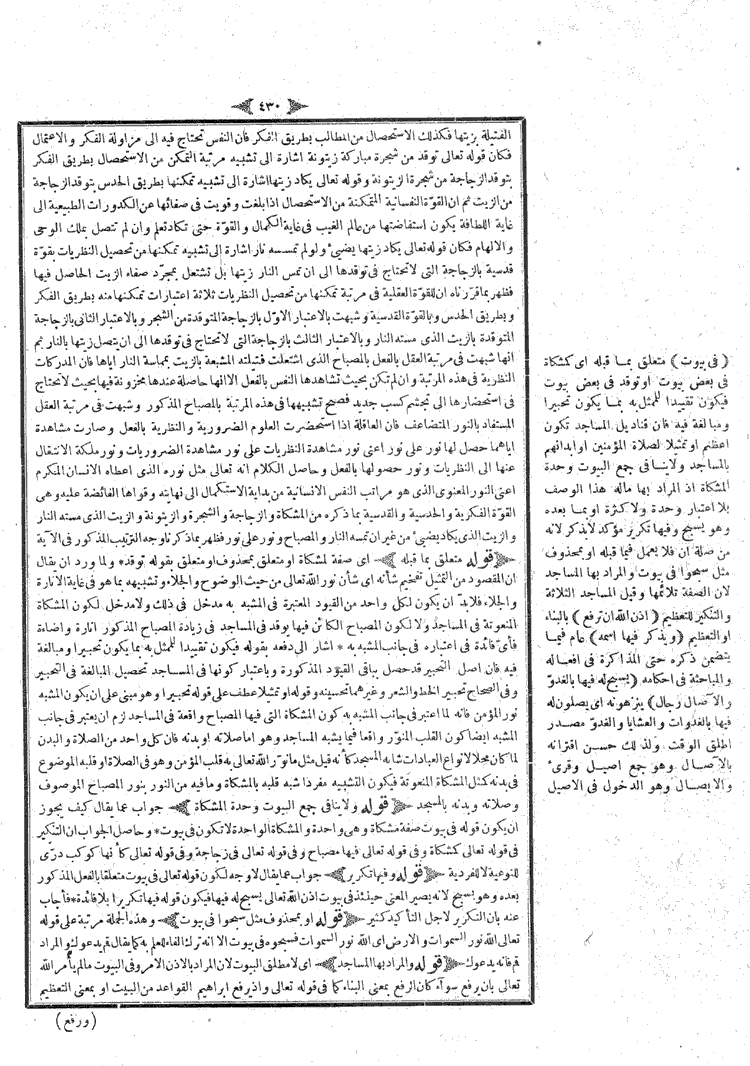 ٤٣٠
الفتيلة بزيتها فكذلك الاستحصال من المطالب بطريق الفكر فان النفس تحتاج فيه الى مزاولة الفكر والاعتمال
فكان قوله تعالى توقد من شجرة مباركة زيتونة اشارة الى تشبيه مرتبة التمكن من الاستحصال بطريق الفكر
بتوقد الزجاجة من شجرة الزيتونة وقوله تعالى يكاد زيتها اشارة الى تشبيه تمكنها بطريق الحدس بتوقد الزجاجة
من الزيت ثم ان القوة النفسانية المتمكنة من الاستحصال اذا بلغت وقويت فى صفائها عن الكدورات الطبيعية الى
غاية اللطافة يكون استفاضتها من عالم الغيب فى غاية الكمال والقوة حتى تكاد تعلم وان لم تتصل بملك الوحى
والالهام فكان قوله تعالى يكاد زيتها يضيئ ولو لم تمسسه نار اشارة الى تشبيه تمكنها من تحصيل النظريات بقوة
قدسية بالزجاجة التى لاتحتاج فى توقدها الى ان تمس النار زيتها بل تشتعل بمجرد صفاء الزيت الحاصل فيها
فظهر بما قررناه ان للقوة العقلية فى مرتبة تمكنها من تحصيل النظريات ثلاثة اعتبارات تمكنها منه بطريق الفكر
وبطريق الحدس وبالقوة القدسية وشبهت بالاعتبار الاول بالزجاجة المتوقدة من الشجر وبالاعتبار الثانى بالزجاجة
المتوقدة بالزيت الذى مسته النار وبالاعتبار الثالث بالزجاجة التى لاتحتاج فى توقدها الى ان يتصل زيتها بالنار ثم
انها شبهت فى مرتبة العقل بالفعل بالمصباح الذى اشتعلت فتيلته المشبعة بالزيت بمماسة النار اياها فان المدركات
النظرية فى هذه المرتبة وان لم تكن بحيث تشاهدها النفس بالفعل الا انها حاصلة عندها مخزونة فيها بحيث لاتحتاج
فى استحضارها الى تجشم كسب جديد فصح تشبيهها فى هذه المرتبة بالمصباح المذكور وشبهت فى مرتبة العقل
المستفاد بالنور المتضاعف فان العاقلة اذا استحضرت العلوم الضرورية والنظرية بالفعل وصارت مشاهدة
اياهما حصل لها نور على نور اعنى نور مشاهدة النظريات على نور مشاهدة الضروريات ونور ملكة الانتقال
عنها الى النظريات ونور حصولها بالفعل وحاصل الكلام انه تعالى مثل نوره الذى اعطاه الانسان المكرم
اعنى النور المعنوى الذى هو مراتب النفس الانسانية من بداية الاستكمال الى نهايته وقواها الفائضة عليه وهى
القوة الفكرية والحدسية والقدسية بما ذكره من المشكاة والزجاجة والشجرة والزيتونة والزيت الذى مسته النار
والزيت الذى يكاد يضئ من غير ان تمسه النار والمصباح ونور على نور فظهر بما ذكرنا وجه الترتيب المذكور فى الآية
قوله متعلق بما قبله اى صفة لمشكاة او متعلق بمحذوف او متعلق بقوله توقد ٭ ولما ورد ان يقال
ان المقصود من التمثيل تفخيم شأنه اى شأن نور الله تعالى من حيث الوضوح والجلاء وتشبيهه بما هو فى غاية الانارة
والجلاء فلابد ان يكون لكل واحد من القيود المعتبرة فى المشبه به مدخل فى ذلك ولا مدخل لكون المشكاة
المنعوتة فى المساجد ولا لكون المصباح الكائن فيها يوقد فى المساجد فى زيادة المصباح المذكور انارة واضاءة
فأى فائدة فى اعتباره فى جانب المشبه به ٭ اشار الى دفعه بقوله فيكون تقييدا للممثل به بما يكون تحبيرا ومبالغة
فيه فان اصل التحبير قد حصل بباقى القيود المذكورة وباعتبار كونها فى المساجد تحصيل المبالغة فى التحبير
وفى الصحاح تحبير الخط والشعر وغيرهما تحسينه وقوله او تمثيلا عطف على قوله تحبيرا وهو مبنى على ان يكون المشبه
نور المؤمن فانه لما اعتبر فى جانب المشبه به كون المشكاة التى فيها المصباح واقعة فى المساجد لزم ان يعتبر فى جانب
المشبه ايضا كون القلب المنور واقعا فيما يشبه المساجد وهو اما صلاته او بدنه فان كل واحد من الصلاة والبدن
لما كان محلا لانواع العبادات شابه المسجد كأنه قيل مثل مانور الله تعالى به قلب المؤمن وهو فى الصلاة او قلبه الموضوع
فى بدنه كمثل المشكاة المنعوتة فيكون التشبيه مفردا شبه قلبه بالمشكاة ومافيه من النور بنور المصباح الموصوف
وصلاته وبدنه بالمسجد قوله ولاينافى جمع البيوت وحدة المشكاة جواب عما يقال كيف يجوز
ان يكون قوله فى بيوت صفة مشكاة وهى واحدة والمشكاة الواحدة لاتكون فى بيوت ٭ وحاصل الجواب ان التنكير
فى قوله تعالى كمشكاة وفى قوله تعالى فيها مصباح وفى قوله تعالى فى زجاجة وفى قوله تعالى كأنها كوكب درى
للنوعية لاللفردية قوله وفيها تكرير جواب عما يقال لاوجه لكون قوله تعالى فى بيوت متعلقا بالفعل المذكور
بعده وهو يسبح لانه يصير المعنى حينئذ فى بيوت اذن الله تعالى يسبح له فيها فيكون قوله فيها تكريرا بلا فائدة ٭ فأجاب
عنه بان التكرير لاجل التأكيد كثير قوله او بمحذوف مثل سبحوا فى بيوت وهذه الجملة مرتبة على قوله
تعالى الله نور السموات والارض اى الله نور السموات فسبحوه فى بيوت الا انه ترك الفاء للعلم به كما يقال قم يدعوك والمراد
قم فانه يدعوك قوله والمراد بها المساجد اى لامطلق البيوت لان المراد بالاذن الامر وفى البيوت مالم يأمر الله
تعالى بان يرفع سوآء كان الرفع بمعنى البناء كما فى قوله تعالى واذ يرفع ابراهيم القواعد من البيت او بمعنى التعظيم
(ورفع)
(فى بيوت) متعلق بما قبله اى كمشكاة
فى بعض بيوت او توقد فى بعض بيوت
فيكون تقييدا للممثل به بما يكون تحبيرا
ومبالغة فيه فان قناديل المساجد تكون
اعظم او تمثيلا لصلاة المؤمنين او ابدانهم
بالمساجد ولاينافى جمع البيوت وحدة
المشكاة اذ المراد بها ماله هذا الوصف
بلا اعتبار وحدة ولا كثرة او بما بعده
وهو يسبح وفيها تكرير مؤكد لا يذكر لانه
من صلة ان فلا يعمل فيما قبله او بمحذوف
مثل سبحوا فى بيوت والمراد بها المساجد
لان الصفة تلائمها وقيل المساجد الثلاثة
والتنكير للتعظيم (اذن الله ان ترفع) بالبناء
او التعظيم (ويذكر فيها اسمه) عام فيما
يتضمن ذكره حتى المذاكرة فى افعاله
والمباحثة فى احكامه (يسبح له فيها بالغدو
والآصال رجال) ينزهونه اى يصلون له
فيها بالغدوات والعشايا والغدو مصدر
اطلق الوقت ولذلك حسن اقترانه
بالآصال وهو جمع اصيل وقرئ
والايصال وهو الدخول فى الاصيل